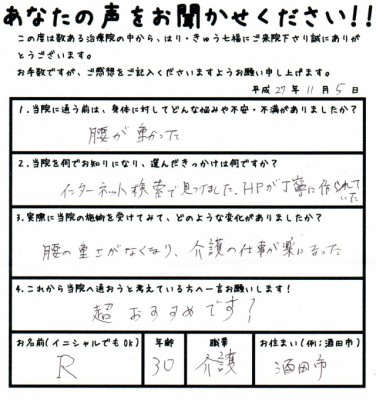 あなたの声をお聞かせください!!
この度は数ある治療院の中から、はり・きゅう七福にご来院下さり誠にありが
とうございます。
お手数ですが、ご感想をご記入くださいますようお願い申し上げます。
平成 27 年 11 月 5 日
1.当院に通う前は、身体に対してどんな悩みや不安・不満がありましたか?
腰が重かった
2.当院を何でお知りになり、選んだきっかけは何ですか?
インターネット検索で見つけました。HPが丁寧に作られていた
3.実際に当院の施術を受けてみて、どのような変化がありましたか?
腰の重さがなくなり、介護の仕事が楽になった
4.これから当院へ通おうと考えている方へ一言お願いします!
超おすすめです!
お名前(イニシャルでもOK) 年齢 職業 お住まい(例;酒田市)
R 30 介護 酒田市